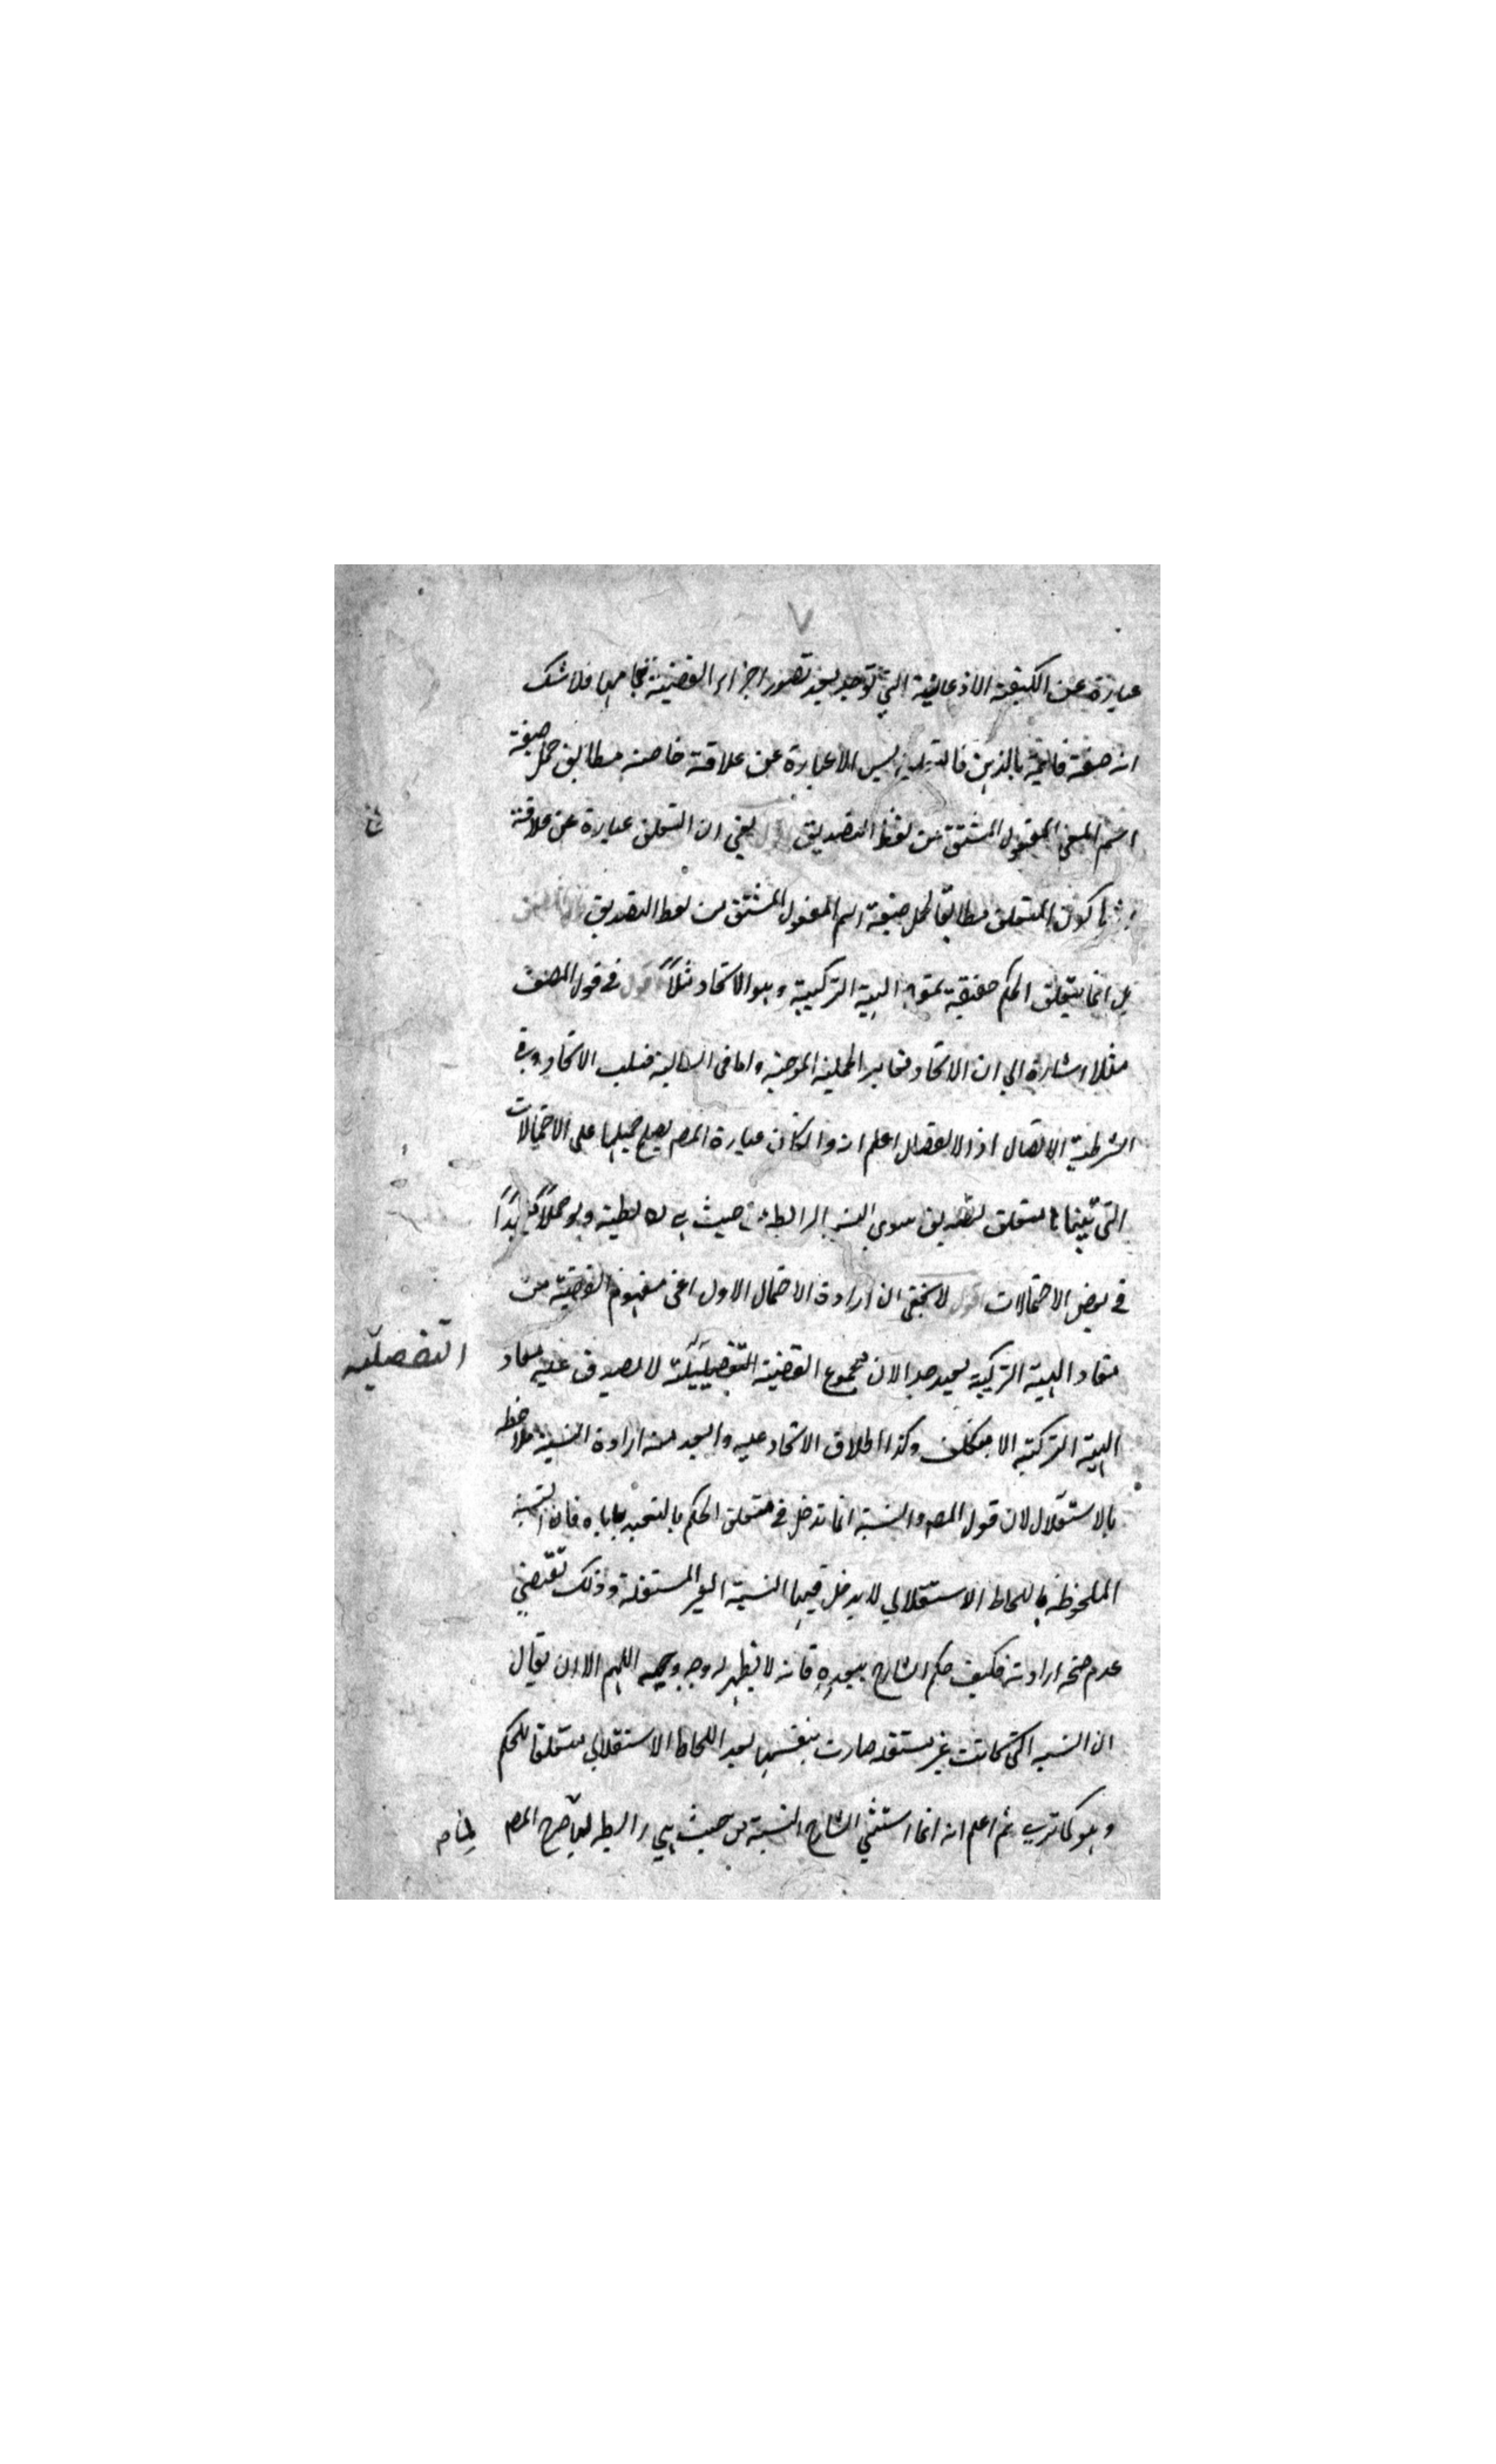 ٧
عبارة عن الكيفية الاذعانية التي توجد بعد تصور اجزاء القضية بتمامها فلا شك
انه صفة قائمة بالذهن فالتعلق ليس الا عبارة عن علاقة خاصة مطابق حمل صيغة
اسم المفعول المشتق من لفظ التصديق يعني ان التعلق عبارة عن علاقة
كون المتعلق مطابقا لحمل صيغة اسم المفعول المشتق من لفظ التصديق
بل انما يتعلق الحكم حقيقة بمفاد الهيئة التركيبية وهو الاتحاد مثلاً قول في قول المصنف
مثلا اشارة الى ان الاتحاد مفاد الحملية الموجبة واما في السالبة فسلب الاتحاد وفي
الشرطية الاتصال او الانفصال اعلم انه وان كان عبارة المصـ يصلح حملها على الاحتمالات
التي بينها متعلق التصديق سوى النسبة الرابطة من حيث هي رابطية
في بعض الاحتمالات قول لا يخفى ان ارادة الاحتمال الاول اعني مفهوم القضية من
مفاد الهيئة التركيبية بعيد جدا لان مجموع القضية التفصيلية لا يصدق عليه مفاد
التفصيلية
الهيئة التركيبية الا بتكلف وكذا اطلاق الاتحاد عليه وابعد منه ارادة النسبة ملاحظة
بالاستقلال لان قول المصـ والنسبة انما تدخل في متعلق الحكم بالتبعية ياباه فان النسبة
الملحوظة باللحاظ الاستقلالي لا يدخل فيها النسبة الغير المستقلة وذلك تقتضي
عدم صحة ارادته فكيف حكم الشارح ببعده فانه لا يظهر له وجه وجيه اللهم الا ان يقال
ان النسبة التي كانت غير مستقلة صارت بنفسها بعد اللحاظ الاستقلالي متعلقا للحكم
وهو كما ترى ثم اعلم انه انما استثنى الشارح النسبة من حيث هي رابطة لما صرح المصـ